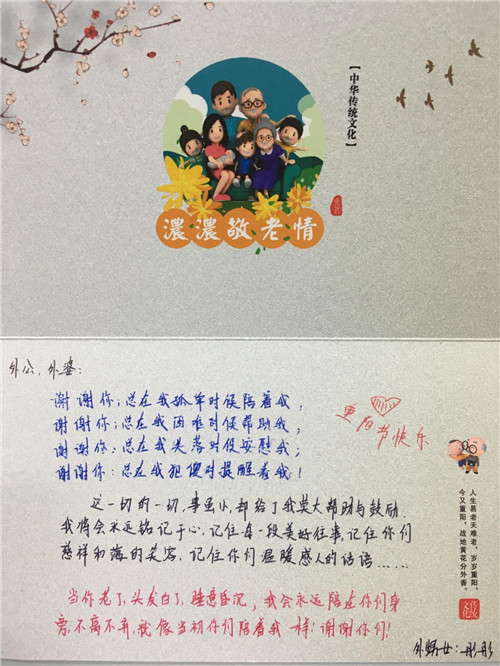 【中华传统文化】
濃濃敬老情
外公、外婆:
谢谢你:总在我孤单时候陪着我,
谢谢你:总在我困难时候帮助我,
谢谢你:总在我失落时候安慰我;
谢谢你:总在我犯傻时提醒着我!
重阳节快乐
这一切的一切,事虽小,却给了我莫大帮助与鼓励.
我将会永远铭记于心,记住每一段美好往事,记住你们
慈祥和蔼的笑容.记住你们温暖感人的话语……
当你老了,头发白了,睡意昏沉,我会永远陪在你们身
旁,不离不弃,就像当初你们陪着我一样!谢谢你们!
人生易老天难老,岁岁重阳,
今又重阳,战地黄花分外香。
外甥女:彤彤